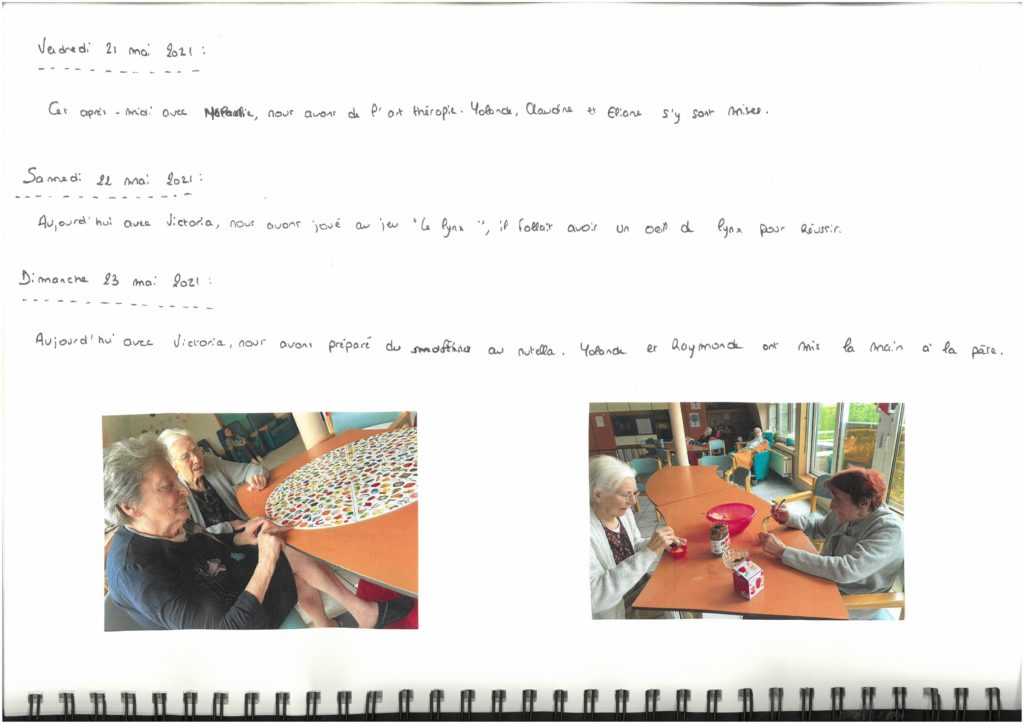 Vendredi 21 mai 2021 :
Cet après-midi avec, nous avons de l'art thérapie. Yolande, Claudine et Eliane s'y sont mises.
Samedi 22 mai 2021 :
Aujourd'hui avec Victoria, nous avons joué au jeu "Le lynx", il fallait avoir un oeil de lynx pour réussir.
Dimanche 23 mai 2021 :
Aujourd'hui avec Victoria, nous avons préparé du au nutella. Yolande et Raymonde ont mis la main à la pâte.